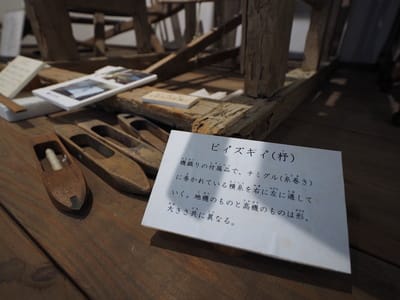 ビイズギイ(杼)
機織りの付属品で、チミグル(糸巻き)
に巻かれている横糸を右に左に通して
いく。地機のものと高機のものは形、
大きさ共に異なる。